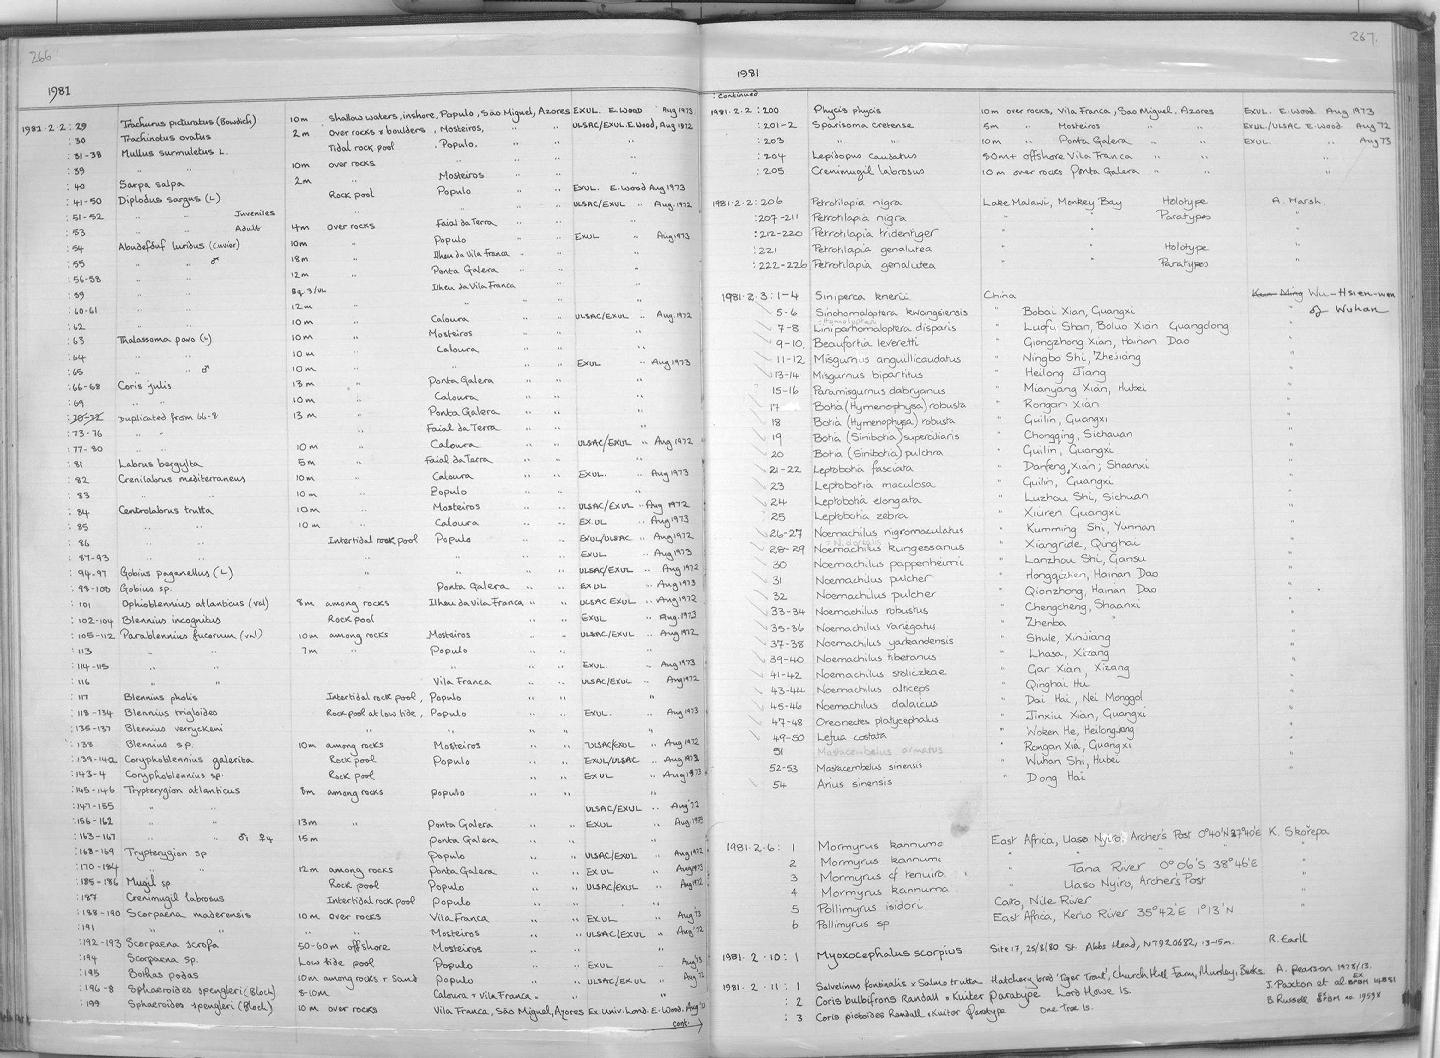 266
1981
1981.2.2:29 Trachurus picturatus (Bowdich) 10m Shallow waters, inshore, Populo, São Miguel, Azores EXUL. E.Wood Aug 1973
:30 Trachinotus ovatus 2m over rocks & boulders, Mosteiros, " " ULSAC/EXUL.E.Wood, Aug 1972
:31-38 Mullus surmuletus L. Tidal rock pool, Populo, " " "
:39 " " 10m over rocks
:40 Sarpa salpa 2m " Mosteiros " "
:41-50 Diplodus sargus (L) Rock pool Populo " " EXUL. E.Wood Aug 1973
:51-52 " " Juveniles " " ULSAC/EXUL " Aug.1972
:53 " " Adult 4m over rocks Faial da Terra " "
:54 Abudefduf luridus (Cuvier) 10m " Populo " " EXUL " Aug 1973
:55 " " ♂ 18m " Ilheu da Vila Franca " "
:56-58 " " 12m " Ponta Galera " "
:59 " " Ilheu da Vila Franca
:60-61 " " 12m " "
:62 " " 10m " Caloura " " ULSAC/EXUL " Aug.1972
:63 Thalassoma pavo (L) 10m " Mosteiros " "
:64 " " 10m " Caloura " "
:65 " " ♂ 10m " " EXUL " Aug 1973
:66-68 Coris julis 13m " Ponta Galera " "
:69 " " 10m " Caloura " "
:70-72 Duplicated from 66-8 13m " Ponta Galera " "
:73-76 " " Faial da Terra " "
:77-80 " " 10m " Caloura " " ULSAC/EXUL " Aug 1972
:81 Labrus bergylta 5m " Faial da Terra " "
:82 Crenilabrus mediterraneus 10m " Caloura " " EXUL. " Aug 1973
:83 " " 10m " Populo " "
:84 Centrolabrus trutta 10m " Mosteiros " " ULSAC/EXUL " Aug 1972
:85 " " 10m " Caloura " " EXUL " Aug 1973
:86 " " Intertidal rock pool Populo " " EXUL/ULSAC " Aug.1972
:87-93 " " " " " EXUL " Aug 1973
:94-97 Gobius paganellus (L) " " " ULSAC/EXUL " Aug 1972
:98-100 Gobius sp. Ponta Galera " " EXUL " Aug 1973
:101 Ophioblennius atlanticus (val) 8m among rocks Ilheu da Vila Franca " " ULSAC EXUL " Aug 1972
:102-104 Blennius incognitus Rock pool " " EXUL " Aug.1973
:105-112 Parablennius fucorum (val) 10m among rocks Mosteiros " " ULSAC/EXUL " Aug 1972
:113 " " 7m " Populo " "
:114-115 " " " " EXUL " Aug 1973
:116 " " Vila Franca " " ULSAC/EXUL " Aug 1972
:117 Blennius pholis Intertidal rock pool, Populo " " "
:118-134 Blennius trigloides Rock pool at low tide, Populo " " EXUL. " Aug 1973
:135-137 Blennius verryckeni " " " "
:138 Blennius sp. 10m among rocks Mosteiros " " ULSAC/EXUL " Aug 1972
:139-142 Coryphoblennius galerita Rock pool Populo " " EXUL/ULSAC " Aug 1972
:143-4 Coryphoblennius sp. Rock pool " " EXUL " Aug 1973
:145-146 Trypterygion atlanticus 8m among rocks Populo " " "
:147-155 " " ULSAC/EXUL " Aug '72
:156-162 " " 13m " Ponta Galera " " EXUL " Aug 1973
:163-167 " " ♂1 ♀4 15m Ponta Galera " "
:168-169 Trypterygion sp Populo " " ULSAC/EXUL " Aug 1972
:170-184 " " 12m among rocks Ponta Galera " " EXUL " Aug 1973
:185-186 Mugil sp Rock pool Populo " " ULSAC/EXUL " Aug 1972
:187 Crenimugil labrosus Intertidal rock pool Populo " " "
:188-190 Scorpaena maderensis 10m over rocks Vila Franca " " EXUL " Aug '73
:191 " " " " Mosteiros " " ULSAC/EXUL " Aug '72
:192-193 Scorpaena scrofa 50-60m offshore Mosteiros " "
:194 Scorpaena sp. Low tide pool Populo " " EXUL " Aug '73
:195 Bothus podas 10m among rocks & sand Populo " " ULSAC/EXUL " Aug '72
:196-8 Sphaeroides spengleri (Bloch) 8-10m Caloura & Vila Franca " "
:199 Sphaeroides spengleri (Bloch) 10m over rocks Vila Franca, São Miguel, Azores Ex Univ. Lond. E.Wood. Aug '73
cont.
267.
1981
: Continued
1981.2.2:200 Phycis phycis 10m over rocks, Vila Franca, Sao Miguel, Azores EXUL. E.Wood Aug 1973
:201-2 Sparisoma cretense 5m " Mosteiros " " EXUL/ULSAC E.Wood Aug 72
:203 " " 10m " Ponta Galera " " EXUL. " Aug 73
:204 Lepidopus caudatus 50m+ offshore Vila Franca " " "
:205 Crenimugil labrosus 10m over rocks Ponta Galera " " "
1981.2.2:206 Petrotilapia nigra Lake Malawi, Monkey Bay Holotype A. Marsh.
:207-211 Petrotilapia nigra " Paratypes "
:212-220 Petrotilapia tridentiger " "
:221 Petrotilapia genalutea " Holotype "
:222-226 Petrotilapia genalutea " Paratypes "
1981.2.3:1-4 Siniperca knerii China Wu-Hsien-wen
5-6 Sinohomaloptera kwangsiensis " Bobai Xian, Guangxi of Wuhan
7-8 Liniparhomaloptera disparis " Luofu Shan, Boluo Xian Guangdong "
9-10 Beaufortia leveretti " Giongzhong Xian, Hainan Dao "
11-12 Misgurnus anguillicaudatus " Ningbo Shi, Zhejiang "
13-14 Misgurnus bipartitus " Heilong Jiang "
15-16 Paramisgurnus dabryanus " Mianyang Xian, Hubei "
17 Botia (Hymenophysa) robusta " Rongan Xian "
18 Botia (Hymenophysa) robusta " Guilin, Guangxi "
19 Botia (Sinibotia) superciliaris " Chongqing, Sichuan "
20 Botia (Sinibotia) pulchra " Guilin, Guangxi "
21-22 Leptobotia fasciata " Danfeng Xian, Shaanxi "
23 Leptobotia maculosa " Guilin, Guangxi "
24 Leptobotia elongata " Luzhou Shi, Sichuan "
25 Leptobotia zebra " Xiuren Guangxi "
26-27 Noemachilus nigromaculatus " Kumming Shi, Yunnan "
28-29 Noemachilus kungessanus " Xiangride, Qinghai "
30 Noemachilus pappenheimi " Lanzhou Shi, Gansu "
31 Noemachilus pulcher " Hongqizhen, Hainan Dao "
32 Noemachilus pulcher " Qionzhong, Hainan Dao "
33-34 Noemachilus robustus " Chengcheng, Shaanxi "
35-36 Noemachilus variegatus " Zhenba " "
37-38 Noemachilus yarkandensis " Shule, Xinjiang "
39-40 Noemachilus tibetanus " Lhasa, Xizang "
41-42 Noemachilus stoliczkae " Gar Xian, Xizang "
43-44 Noemachilus alticeps " Qinghai Hu "
45-46 Noemachilus dalaicus " Dai Hai, Nei Monggol "
47-48 Oreonectes platycephalus " Jinxiu Xian, Guangxi "
49-50 Lefua costata " Woken He, Heilongjiang "
51 Mastacembelus armatus " Rongan Xia, Guangxi "
52-53 Mastacembelus sinensis " Wuhan Shi, Hubei "
54 Arius sinensis " Dong Hai "
1981.2.6: 1 Mormyrus kannume East Africa, Uaso Nyiro, Archer's Post 0°40'N 37°40'E K. Skořepa
2 Mormyrus kannume " " " "
3 Mormyrus cf tenuiro. " Tana River 0°06'S 38°46'E "
4 Mormyrus kannuma " Uaso Nyiro, Archer's Post "
5 Pollimyrus isidori Cairo, Nile River "
6 Pollimyrus sp East Africa, Kerio River 35°42'E 1°13'N "
1981.2.10:1 Myoxocephalus scorpius Site 17, 25/8/80 St. Abbs Head, NT920682, 13-15m. R. Earll
1981.2.11: 1 Salvelinus fontinalis x Salmo trutta Hatchery bred 'Tiger Trout', Church Hill Farm, Mursley, Bucks A. Pearson 1978/13.
: 2 Coris bulbifrons Randall & Kuiter Paratype Lord Howe Is. J. Paxton et al. Ex BPBM 14851
: 3 Coris pictoides Randall & Kuiter Paratype One Tree Is. B. Russell Ex BPBM no. 19598